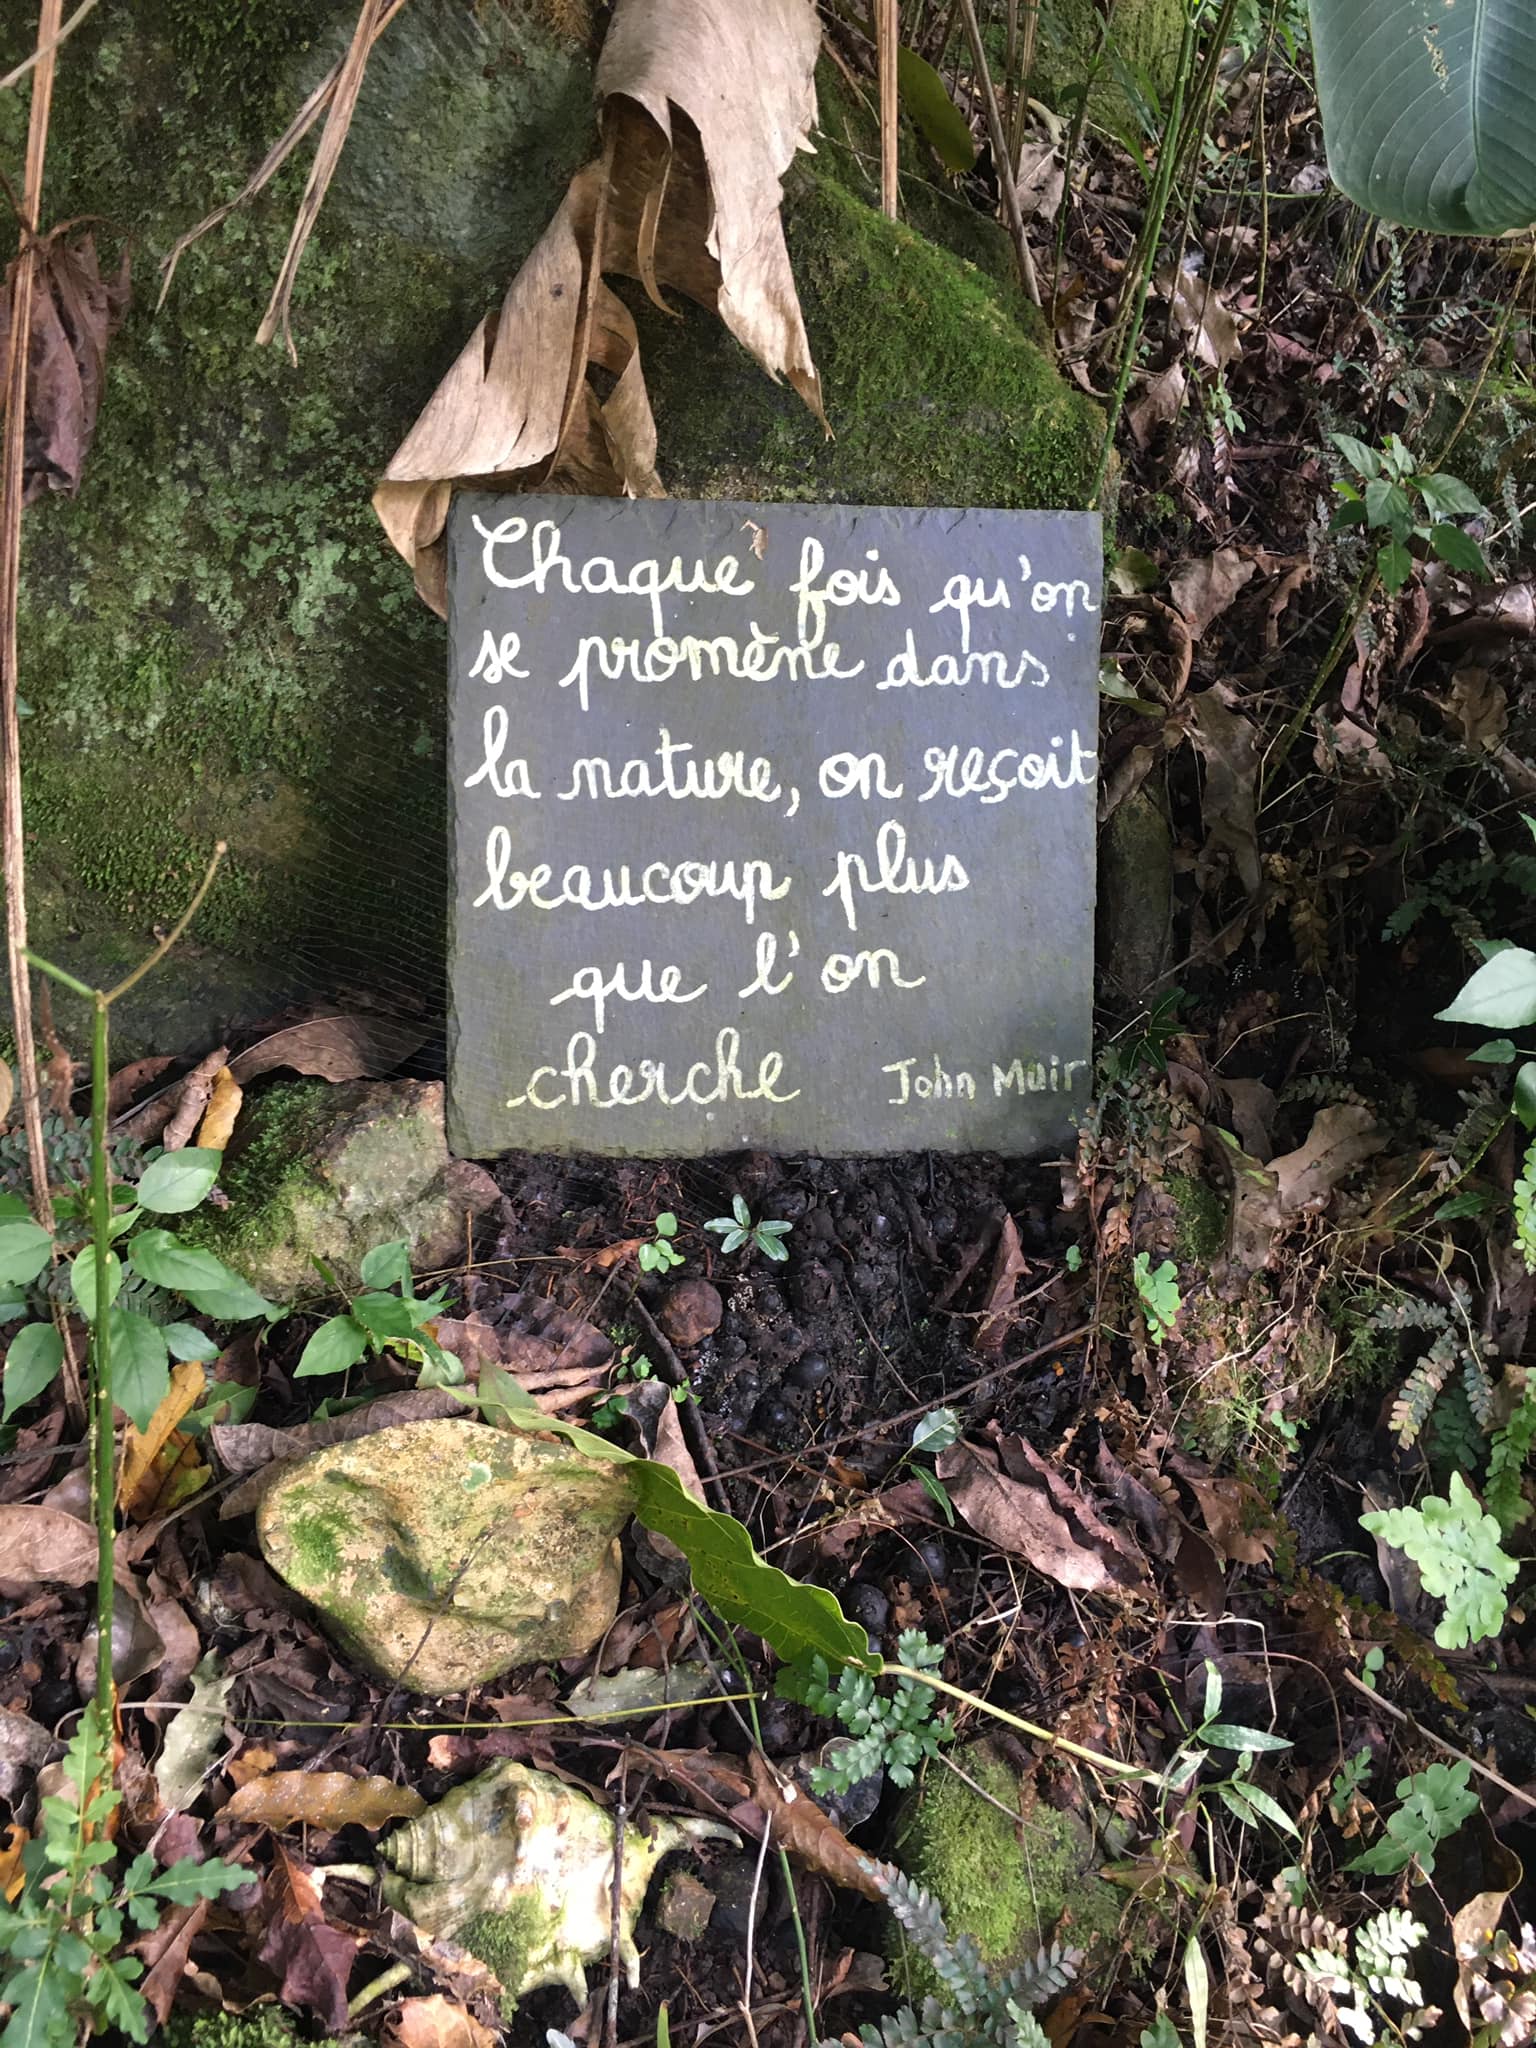 Chaque fois qu'on
se promène dans
la nature, on reçoit
beaucoup plus
que l'on
cherche John Muir